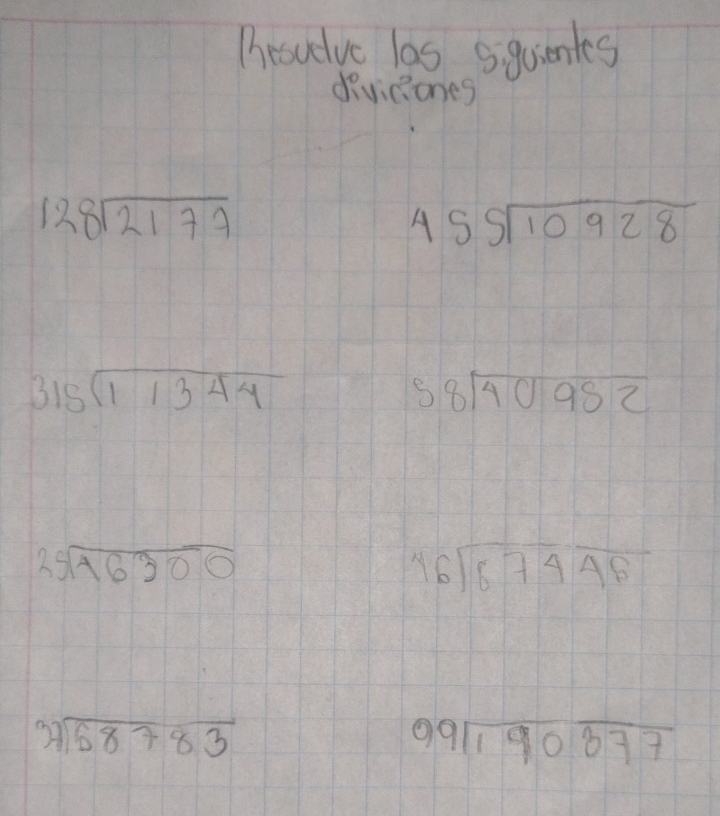 Resuelve las siguientes
diviciones
128 2177
455 10928
315 11344
58 40952
25 46300
46 67446
37 68783
99 190377